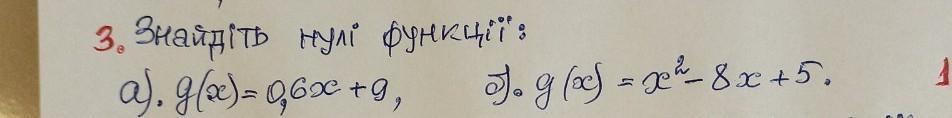 3. Знайдіть нулі функції:
а). g(x)=0,6x+9, б). g(x)=x²-8x+5. 1